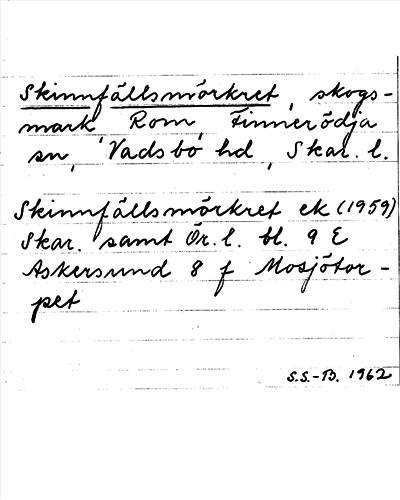 Skinnfällsmörkret, skogs-
mark Rom, Finnerödja
sn, Vadsbo hd, Skar. l.
Skinnfällsmörkret ek (1959)
Skar. samt Ör. l. bl. 9 E
Askersund 8 f Mosjötor-
pet
S.S.-B. 1962